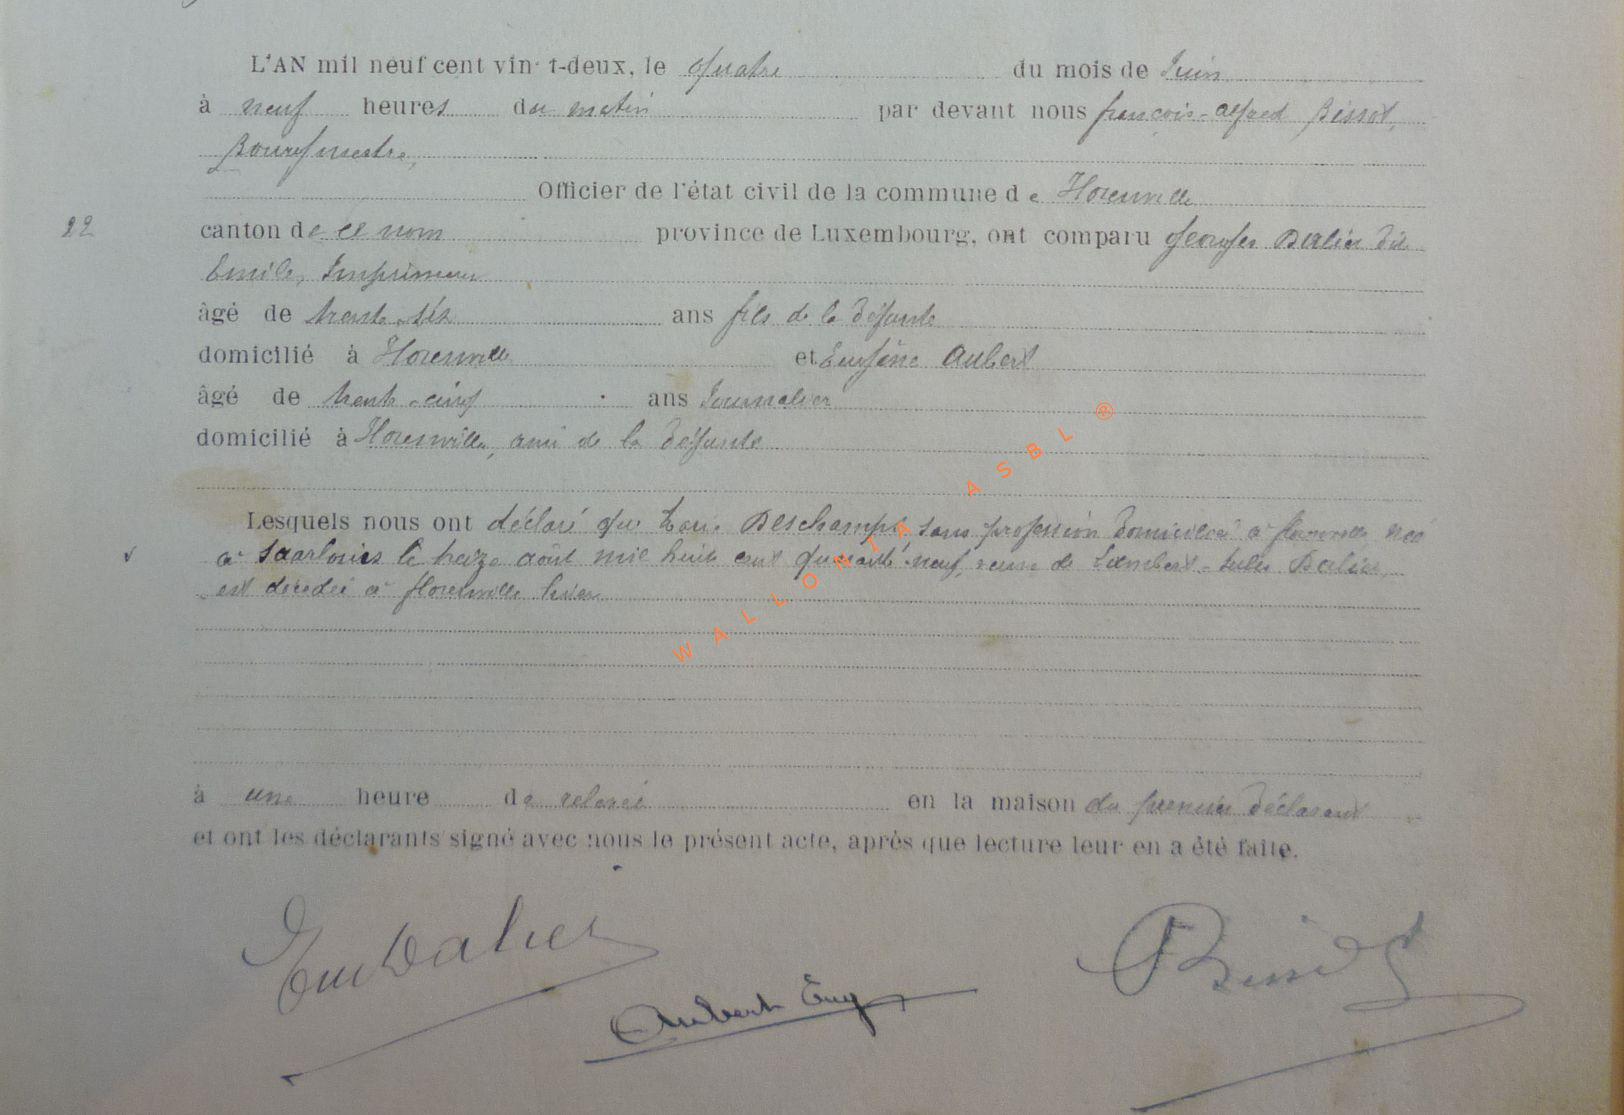 L'AN mil neuf cent vin t-deux, le quatre du mois de Juin
à neuf heures du matin par devant nous françois-alfred Bissot,
Bourgmestre,
Officier de l'état civil de la commune de Florenville
22
canton de ce nom province de Luxembourg, ont comparu Georges Dalier dit
Emile, Imprimeur
âgé de trente-six ans fils de la défunte
domicilié à Florenville et Eugène Aubert
âgé de trente-cinq ans Journalier
domicilié à Florenville, ami de la défunte
Lesquels nous ont déclaré que Marie Deschamps, sans profession domiciliée à florenville née
à Saarlouis le treize août mil huit cent quarante-neuf, veuve de Lambert-Jules Dalier,
est décédée à florenville hier
WALLONIA ASBL ®
à une heure de relevée en la maison du premier déclarant
et ont les déclarants signé avec nous le présent acte, après que lecture leur en a été faite.
Em Dalier
Aubert Eug
Bissot